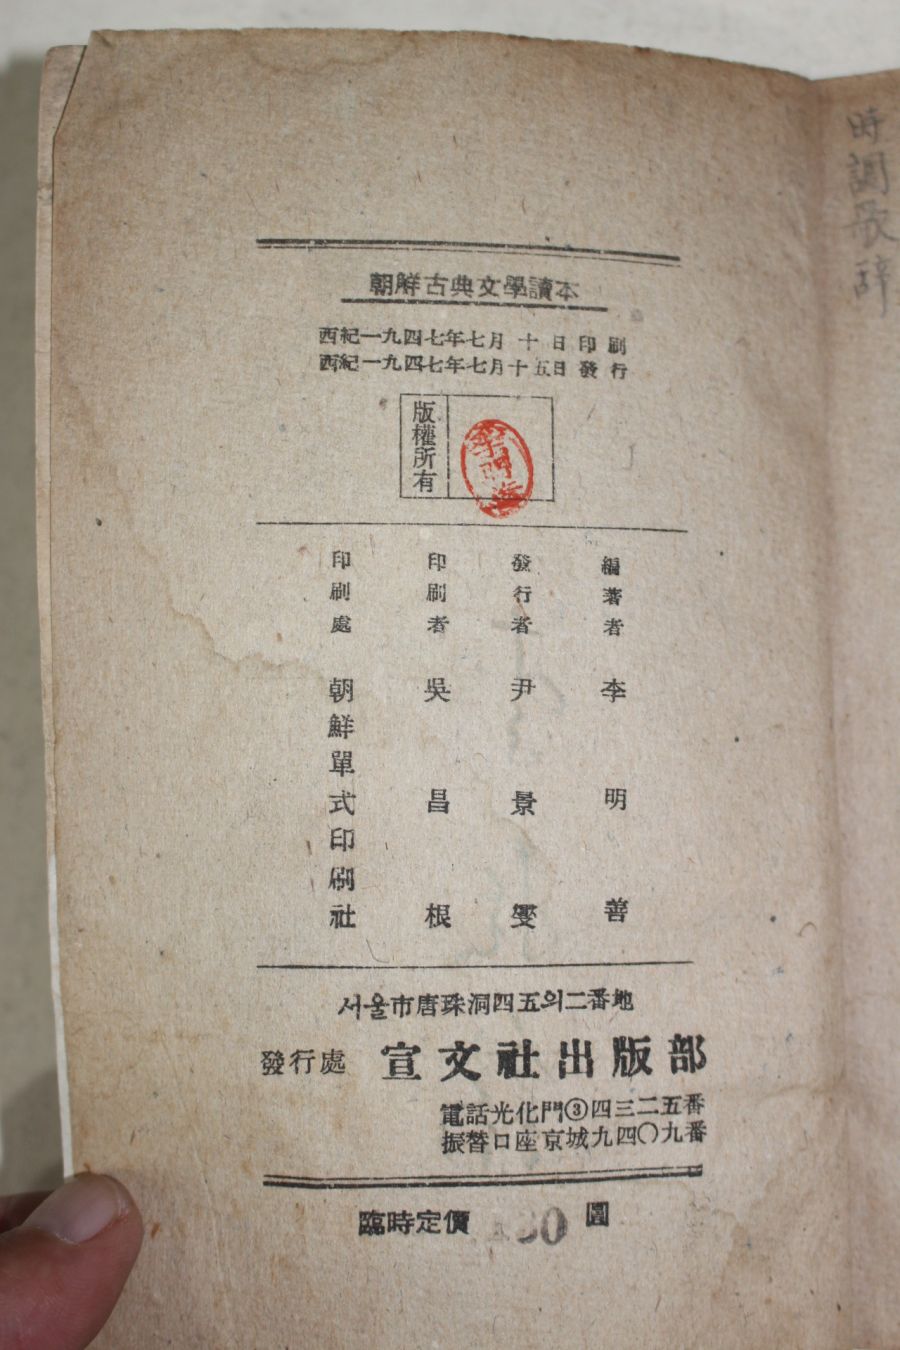 朝鮮古典文學讀本
西紀一九四七年七月十日印刷
西紀一九四七年七月十五日發行
版權所有
李明善
編著者 李明善
發行者 尹景燮
印刷者 吳昌根
印刷處 朝鮮單式印刷社
서울市唐珠洞四五의二番地
發行處 宣文社出版部
電話光化門③四三二五番
振替口座京城九四〇九番
臨時定價 圓
時調歌辭